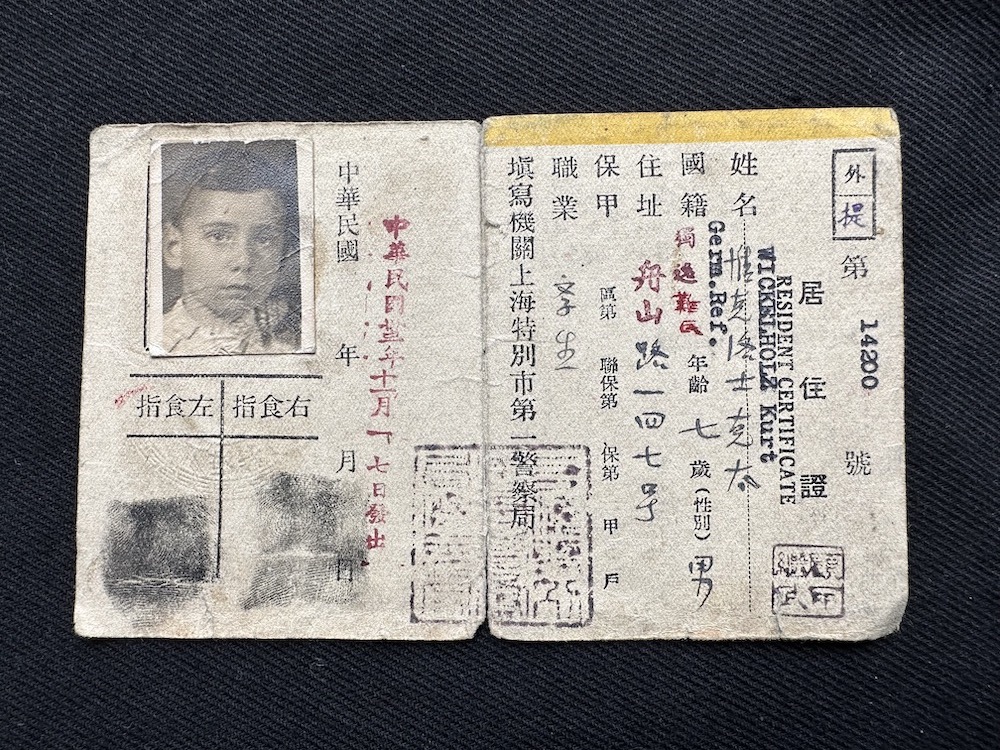 外
提
第 14200 號
居住證
RESIDENT CERTIFICATE
WICKELHOLZ Kurt
姓名 克
Germ.Ref.
國籍 難民 年齡 七 歲(性別)男
住址 舟山路一四七号
保甲 區第 聯保第 保第 甲 戶
職業 学生
填寫機關上海特別市第一警察局
中華民国 年十 月 七日發出
中華民國 年 月 日
右食指
左食指